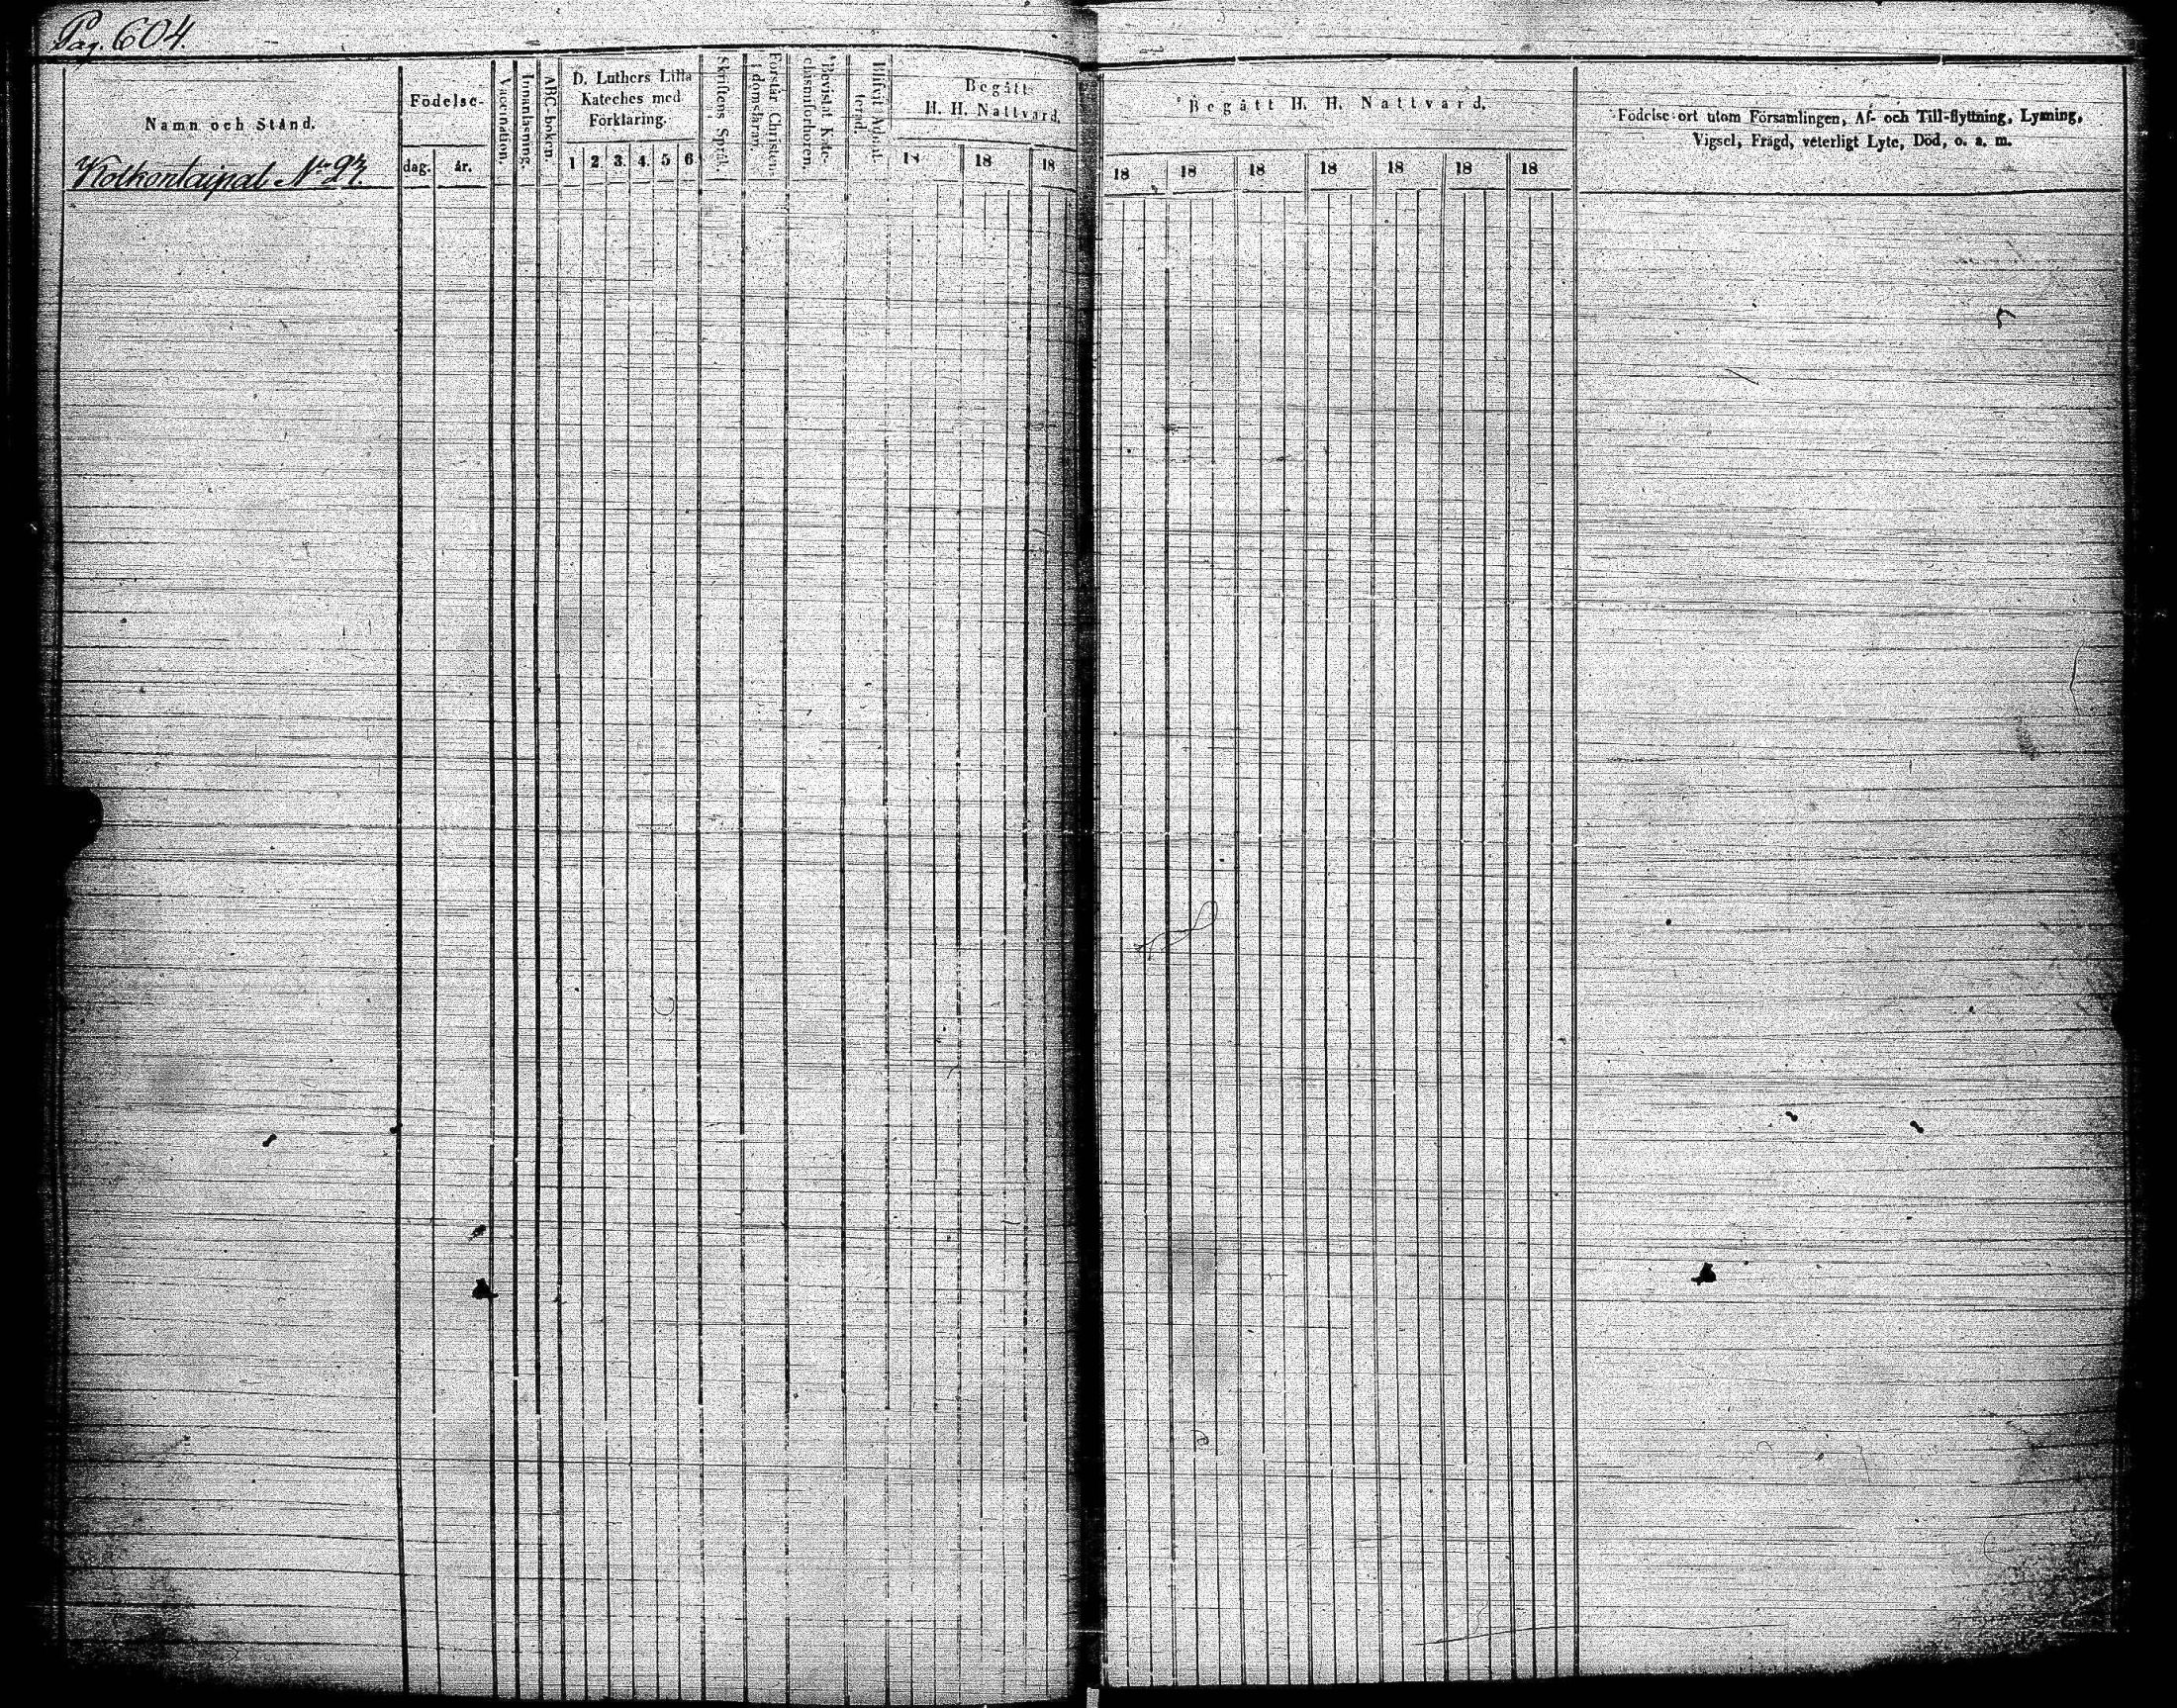 Pag. 604.
Namn och Stånd.
Kolkontaipal No 27.
Födelse-
dag. år.
Vaccination.
Innanläsning.
ABC-boken.
D. Luthers Lilla
Kateches med
Förklaring.
1 2. 3. 4. 5 6
Skriftens Språk.
Förstår Christen-
domsläran.
Bevistat Kate-
chismiförhören.
Begått
H. H. Nattvard.
18 18 18
Begått H. H. Nattvard.
18 18 18 18 18 18 18
Födelse-ort utom Församlingen, Af- och Till-flyttning, Lysning,
Vigsel, Frägd, veterligt Lyte, Död, o. s. m.